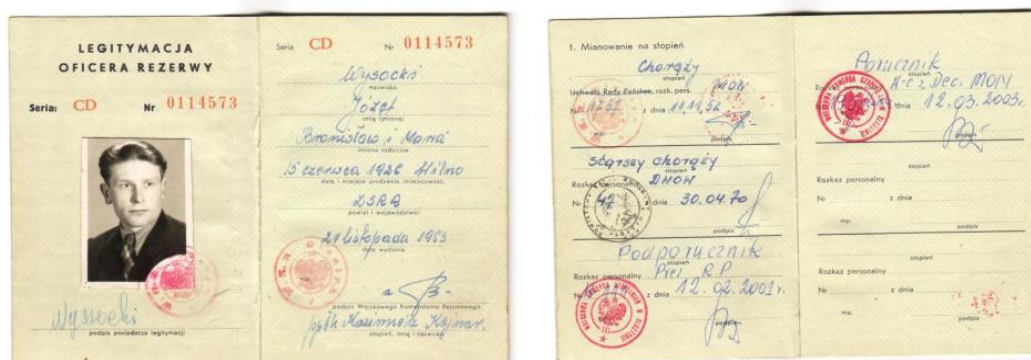 LEGITYMACJA
OFICERA REZERWY
Seria: CD Nr 0114573
Wysocki
podpis posiadacza legitymacji
Seria CD Nr 0114573
Wysocki
nazwisko
Józef
imię (imiona)
Bronisław i Maria
imiona rodziców
15 czerwca 1926 Milno
data i miejsce urodzenia (miejscowość,
ZSRR
powiat i województwo)
21 listopada 1963
data wydania
podpis Wojskowego Komendanta Rejonowego
ppłk Kazimierz
stopień, imię i nazwisko
1. Mianowanie na stopień
Chorąży
stopień
Uchwała Rady Państwa, rozk. pers. MON
Nr 1757 z dnia 11.11.52
mp.
podpis
starszy chorąży
stopień
Rozkaz personalny DMOW
Nr 42 z dnia 30.04.70
podpis
Podporucznik
stopień
Rozkaz personalny Prez. R.P
Nr z dnia 12.02.2001 r.
podpis
Porucznik
stopień
Dec. MON
dnia 12.03.2003.
podpis
stopień
Rozkaz personalny
Nr z dnia
mp.
podpis
stopień
Rozkaz personalny
Nr z dnia
mp.
podpis